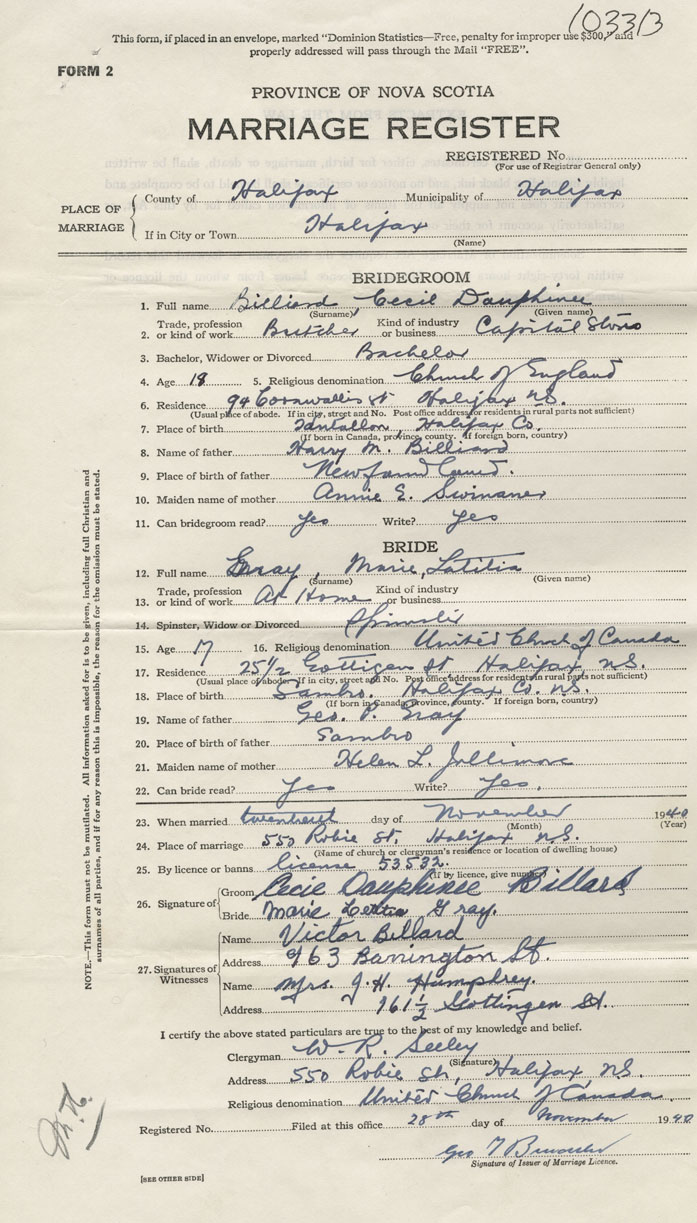 103313
This form, if placed in an envelope, marked "Dominion Statistics—Free, penalty for improper use $300," and
properly addressed will pass through the Mail "FREE".
FORM 2
PROVINCE OF NOVA SCOTIA
MARRIAGE REGISTER
REGISTERED No.
(For use of Registrar General only)
PLACE OF MARRIAGE
County of Halifax Municipality of Halifax
If in City or Town Halifax
(Name)
BRIDEGROOM
1. Full name Billiard, Cecil Dauphinee
(Surname) (Given name)
2. Trade, profession or kind of work Butcher Kind of industry or business Capital Stores
3. Bachelor, Widower or Divorced Bachelor
4. Age 18 5. Religious denomination Church of England
6. Residence 94 Cornwallis st Halifax N.S.
(Usual place of abode. If in city, street and No. Post office address for residents in rural parts not sufficient)
7. Place of birth Tantallon, Halifax Co.
(If born in Canada, province, county. If foreign born, country)
8. Name of father Harry M. Billiard
9. Place of birth of father Newfound Land.
10. Maiden name of mother Annie E.
11. Can bridegroom read? yes Write? yes
BRIDE
12. Full name Gray, Marie, Latitia
(Surname) (Given name)
13. Trade, profession or kind of work At Home Kind of industry or business
14. Spinster, Widow or Divorced Spinster
15. Age 17 16. Religious denomination United Church of Canada
17. Residence 251/2 Gottigen st Halifax, N.S.
(Usual place of abode. If in city, street and No. Post office address for residents in rural parts not sufficient)
18. Place of birth Sambro. Halifax Co. N.S.
(If born in Canada, province, county. If foreign born, country)
19. Name of father Geo. P. Gray
20. Place of birth of father Sambro
21. Maiden name of mother Helen L. Jollimore
22. Can bride read? Yes Write? Yes.
23. When married day of November 1940
(Month) (Year)
24. Place of marriage 550 Robie St, Halifax N.S.
(Name of church or clergyman's residence or location of dwelling house)
25. By licence or banns license 53532.
(If by licence, give number)
26. Signature of
Groom Cecil Dauphinee Billard
Bride Marie Letitia Gray.
27. Signatures of Witnesses
Name Victor Billard
Address 963 Barrington St.
Name Mrs. J. H. Humphrey.
Address 161 1/2 Gottingen St.
I certify the above stated particulars are true to the best of my knowledge and belief.
Clergyman W. R. Seeley
(Signature)
Address 550 Robie St, Halifax, N.S.
Religious denomination United Church of Canada.
Registered No. Filed at this office 28th day of November 1940
Geo
Signature of Issuer of Marriage Licence.
[SEE OTHER SIDE]
NOTE.—This form must not be mutilated. All information asked for is to be given, including full Christian and
surnames of all parties, and if for any reason this is impossible, the reason for the omission must be stated.